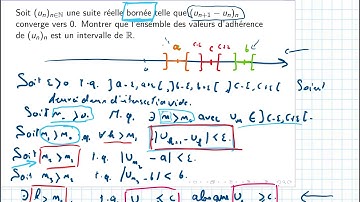 Soit (uₙ)ₙ∈ℕ une suite réelle bornée telle que (uₙ₊₁ − uₙ)ₙ
converge vers 0. Montrer que l'ensemble des valeurs d'adhérence
de (uₙ)ₙ est un intervalle de ℝ.
a c-ε c c+ε b
Soit ε>0 t.q. ]a-ε, a+ε[, ]b-ε, b+ε[, ]c-ε, c+ε[ soient
d'intersection vide.
Soit m₀ > 0. M.q. ∃ m > m₀ avec uₘ ∈ ]c-ε, c+ε[
Soit m₁ > m₀ t.q. ∀ k > m₁ |uₖ₊₁ - uₖ| < ε.
Soit m₂ > m₁ t.q. |uₘ₂ - a| < ε.
Soit m₃ > m₂ t.q. |uₘ₃ - b| < ε.